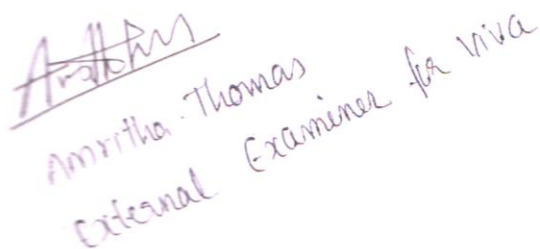 Amritha. Thomas
External Examiner for viva